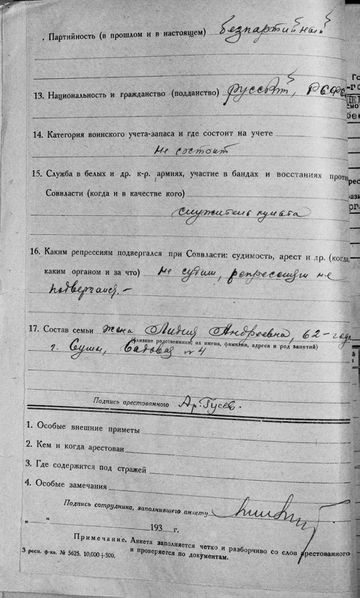 . Партийность (в прошлом и в настоящем) безпартийный
13. Национальность и гражданство (подданство) русский, РСФС
14. Категория воинского учета-запаса и где состоит на учете
не состоит
15. Служба в белых и др. к-р. армиях, участие в бандах и восстаниях проти
Соввласти (когда и в качестве кого)
служитель культа
16. Каким репрессиям подвергался при Соввласти: судимость, арест и др. (когда,
каким органом и за что) не судим, репрессиям не
подвергался.-
17. Состав семьи жена Лидия Андреевна, 62-года
(близкие родственники, их имена, фамилии, адреса и род занятий)
г. Сумы, Садовая №4
Подпись арестованного Ар. Гусев.
1. Особые внешние приметы
2. Кем и когда арестован
3. Где содержится под стражей
4. Особые замечания
Подпись сотрудника, заполнившего анкету
" " 193 г.
Примечание. Анкета заполняется четко и разборчиво со слов арестованного
и проверяется по документам.
3 респ. ф-ка. № 5625. 10,000+500.